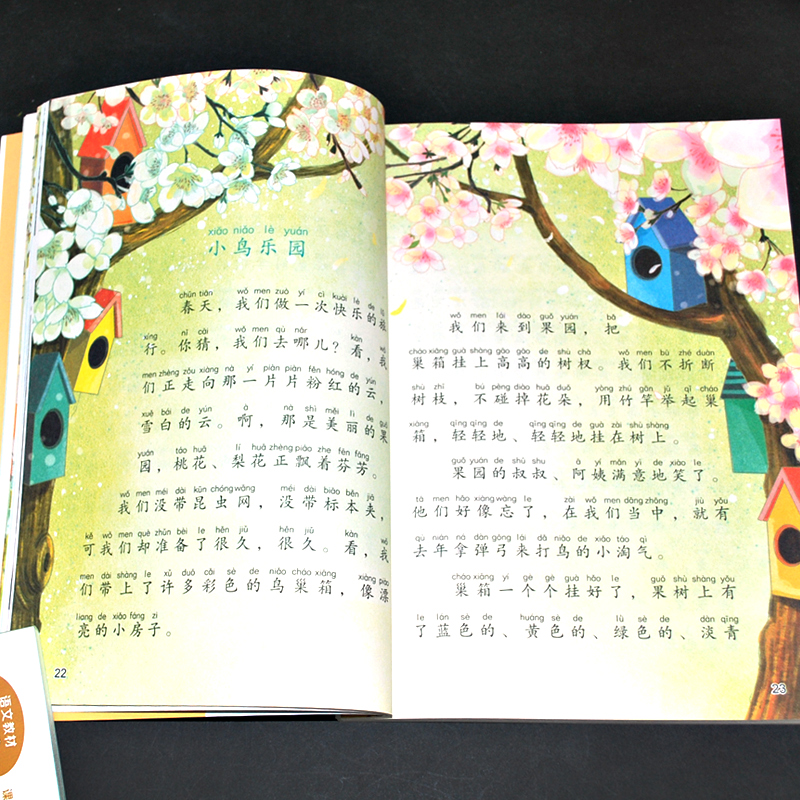 xiǎo niǎo lè yuán
小鸟乐园
chūn tiān wǒ men zuò yí cì kuài lè de lǚ
春天，我们做一次快乐的旅
xíng nǐ cāi wǒ men qù nǎr kàn wǒ
行。你猜，我们去哪儿？看，我
men zhèng zǒu xiàng nà yí piàn piàn fěn hóng de yún
们正走向那一片片粉红的云，
xuě bái de yún à nà shì měi lì de guǒ
雪白的云。啊，那是美丽的果
yuán táo huā lí huā zhèng piāo zhe fēn fāng
园，桃花、梨花正飘着芬芳。
wǒ men méi dài kūn chóng wǎng méi dài biāo běn jiā
我们没带昆虫网，没带标本夹，
kě wǒ men què zhǔn bèi le hěn jiǔ hěn jiǔ kàn wǒ
可我们却准备了很久，很久。看，我
men dài shàng le xǔ duō cǎi sè de niǎo cháo xiāng xiàng piào
们带上了许多彩色的鸟巢箱，像漂
liang de xiǎo fáng zi
亮的小房子。
22
wǒ men lái dào guǒ yuán bǎ
我们来到果园，把
cháo xiāng guà shàng gāo gāo de shù chà wǒ men bù zhé duàn
巢箱挂上高高的树杈。我们不折断
shù zhī bú pèng diào huā duǒ yòng zhú gān jǔ qǐ cháo
树枝，不碰掉花朵，用竹竿举起巢
xiāng qīng qīng de qīng qīng de guà zài shù shàng
箱，轻轻地、轻轻地挂在树上。
guǒ yuán de shū shu ā yí mǎn yì de xiào le
果园的叔叔、阿姨满意地笑了。
tā men hǎo xiàng wàng le zài wǒ men dāng zhōng jiù yǒu
他们好像忘了，在我们当中，就有
qù nián ná dàn gōng lái dǎ niǎo de xiǎo táo qì
去年拿弹弓来打鸟的小淘气。
cháo xiāng yí gè gè guà hǎo le guǒ shù shàng yǒu
巢箱一个个挂好了，果树上有
le lán sè de huáng sè de lǜ sè de dàn qīng
了蓝色的、黄色的、绿色的、淡青
23
语文教材
课